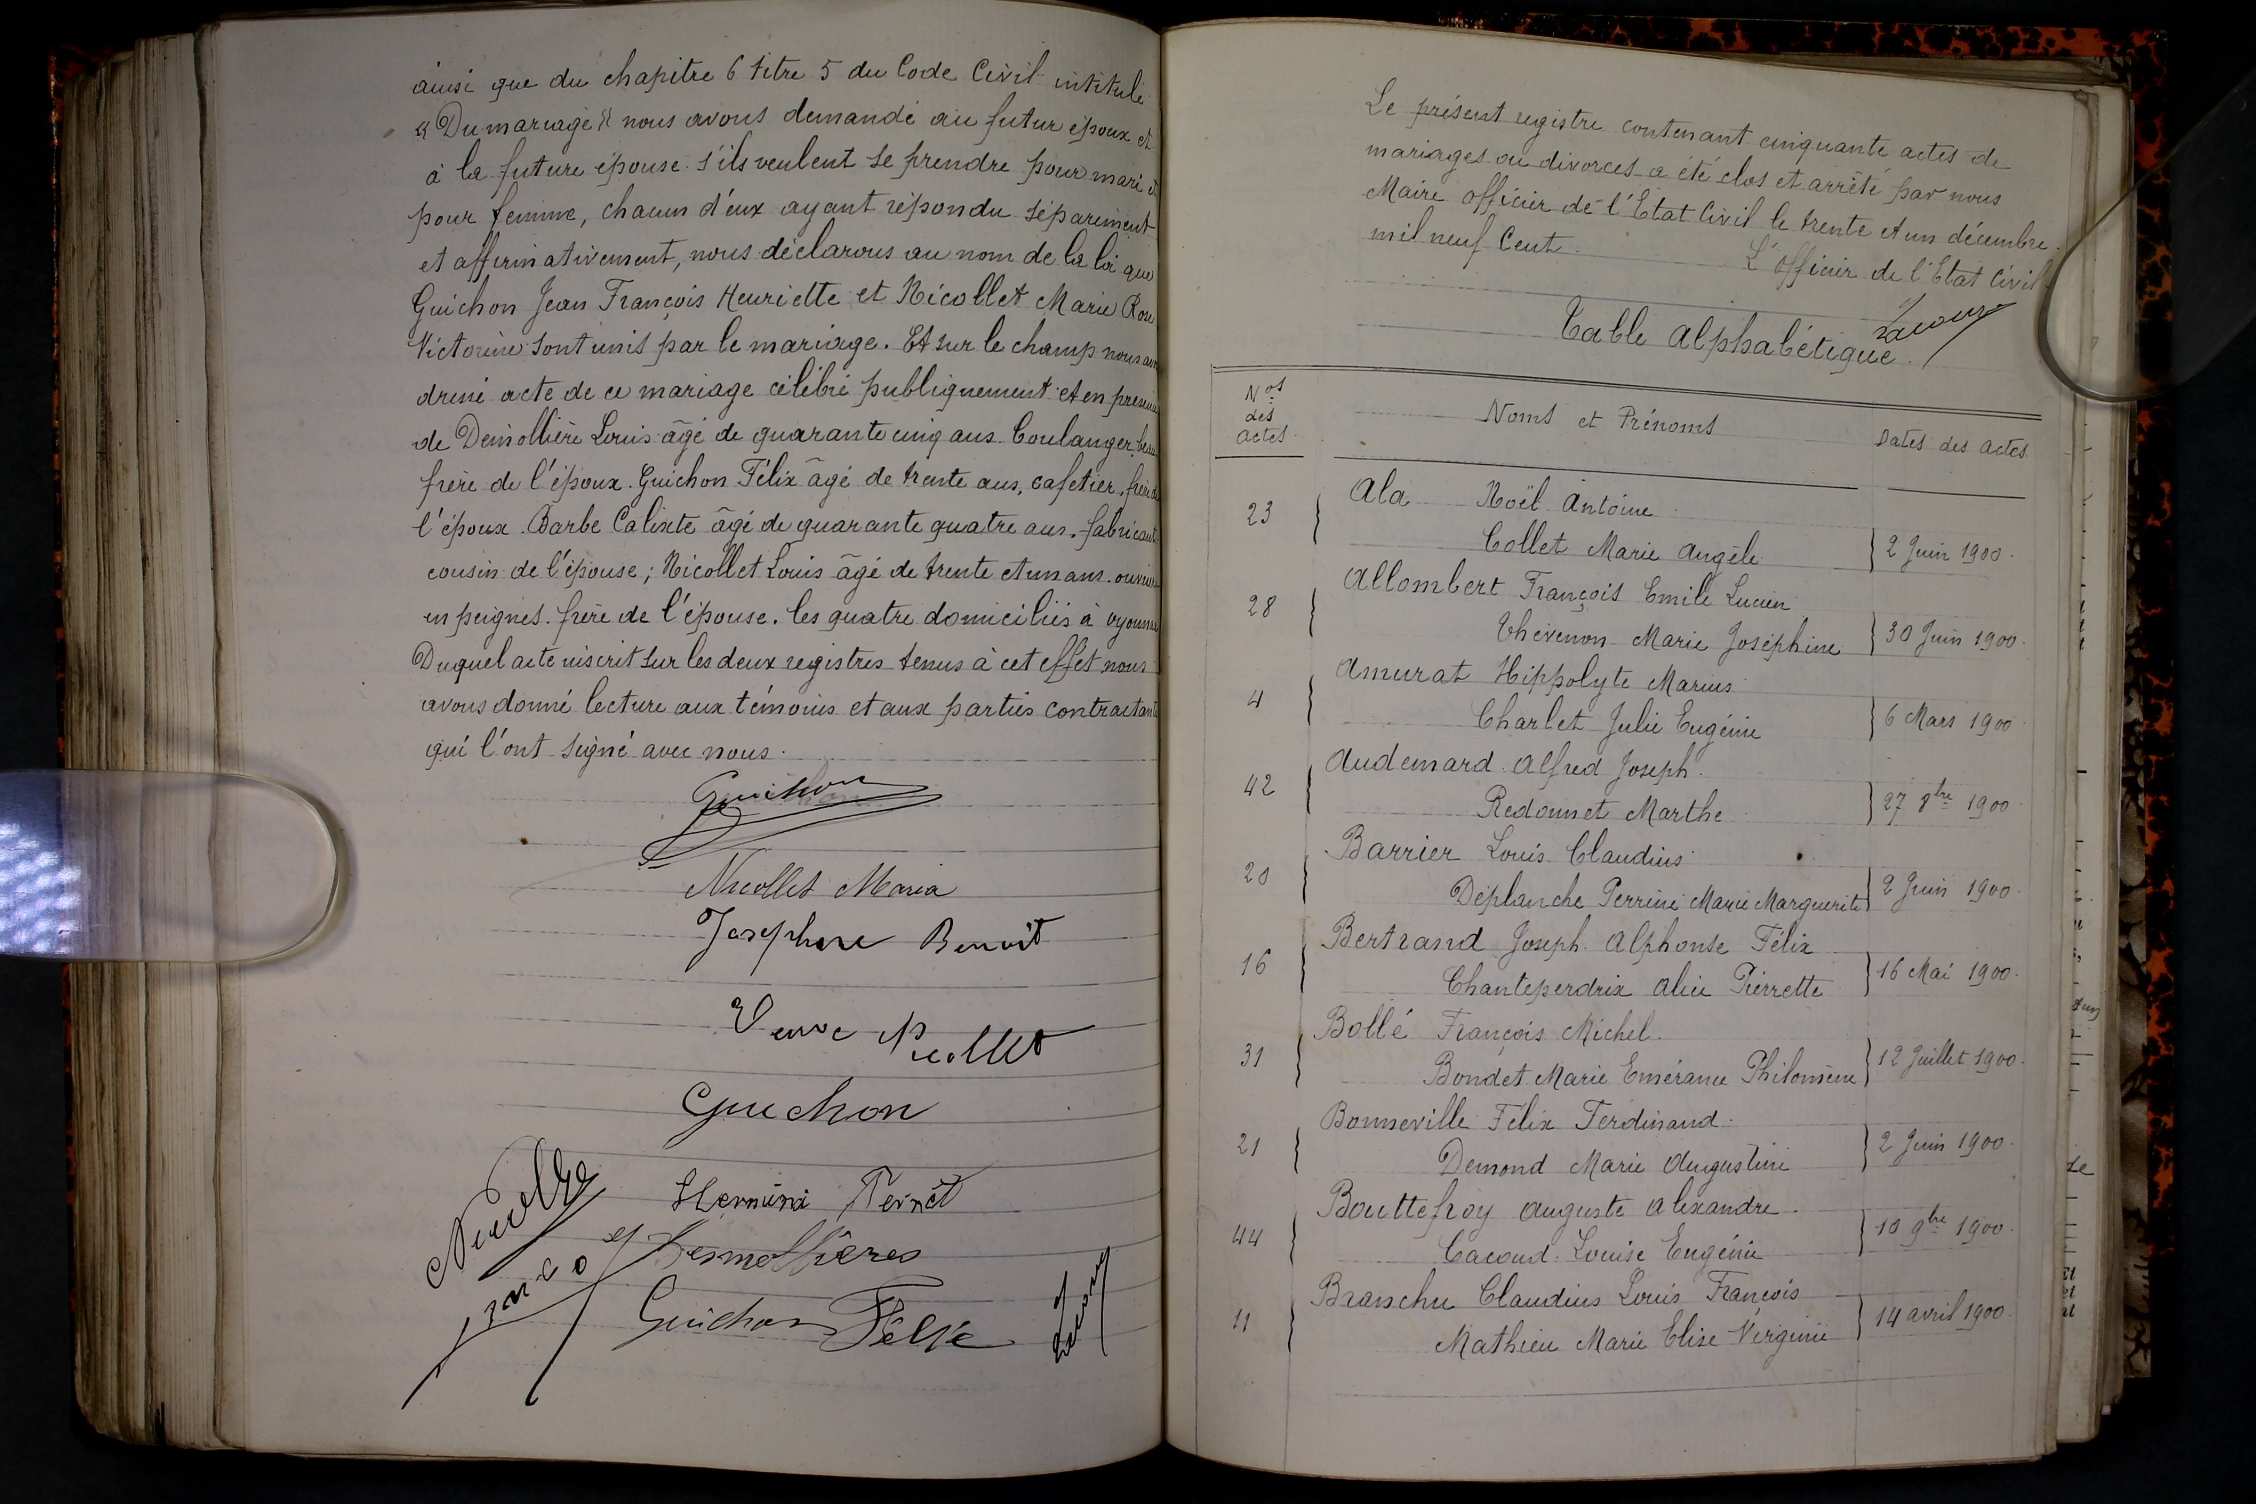 ainsi que du chapitre 6 titre 5 du Code Civil intitulé
« Du mariage » nous avons demandé au futur époux et
à la future épouse s'ils veulent se prendre pour mari et
pour femme, chacun d'eux ayant répondu séparément
et affirmativement, nous déclarons au nom de la loi que
Guichon Jean François Henriette et Nicollet Marie Rose
Victorine sont unis par le mariage. Et sur le champ nous avons
dressé acte de ce mariage célébré publiquement et en présence
de Demollière Louis âgé de quarante cinq ans. boulanger, beau
frère de l'époux. Guichon Félix âgé de trente ans, cafetier, frère de
l'époux. Barbe Calixte âgé de quarante quatre ans. fabricant
cousin de l'épouse; Nicollet Louis âgé de trente et un ans. ouvrier
en peignes. frère de l'épouse. les quatre domiciliés à oyonnax
Duquel acte inscrit sur les deux registres tenus à cet effet nous
avons donné lecture aux témoins et aux parties contractantes
qui l'ont signé avec nous.
Guichon
Nicollet Maria
Josephine Benoit
Veuve Nicollet
Guichon
Nicollet
Hermina Pernet
Desmollières
Guichon Félix
Le présent registre contenant cinquante actes de
mariages ou divorces a été clos et arrêté par nous
Maire officier de l'Etat Civil le trente et un décembre
mil neuf Cent.
L'officier de l'Etat Civil.
Table alphabétique.
Nos des actes
Noms et Prénoms
Dates des actes
23 Ala Noël Antoine
Collet Marie Angèle 2 Juin 1900.
28 Allombert François Emile Lucien
Thévenon Marie Joséphine 30 Juin 1900.
4 Amurat Hippolyte Marius
Charlet Julie Eugénie 6 Mars 1900
42 Audemard Alfred Joseph.
Redonnet Marthe 27 8bre 1900
20 Barrier Louis Claudius
Déplanche Perrine Marie Marguerite 2 Juin 1900.
16 Bertrand Joseph Alphonse Félix
Chanteperdrix Alice Pierrette 16 Mai 1900.
31 Bollé François Michel.
Bondet Marie Emérance Philomène 12 Juillet 1900.
21 Bonneville Félix Ferdinand.
Demond Marie Augustine 2 Juin 1900.
44 Bouttefroy Auguste Alexandre.
Cacoud Louise Eugénie 10 9bre 1900.
11 Branchu Claudius Louis François
Mathieu Marie Elise Virginie 14 avril 1900.